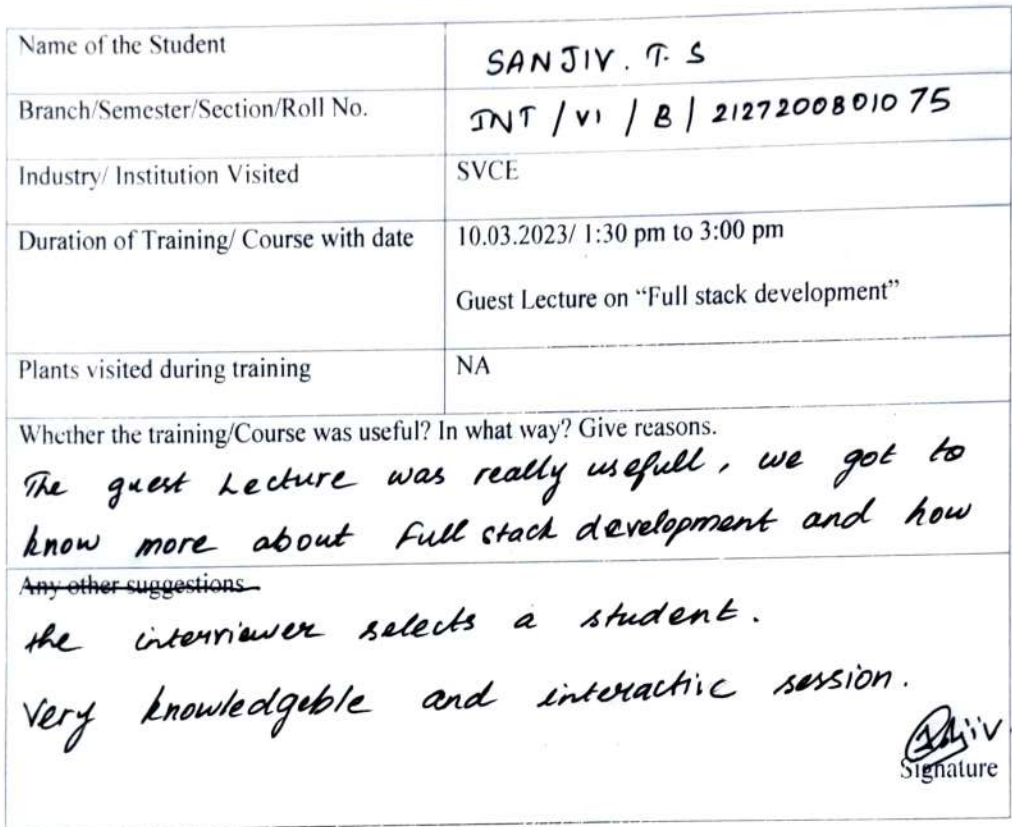 Name of the Student SANJIV. T. S
Branch/Semester/Section/Roll No. INT / VI / B / 2127200801075
Industry/ Institution Visited SVCE
Duration of Training/ Course with date 10.03.2023/ 1:30 pm to 3:00 pm
Guest Lecture on “Full stack development”
Plants visited during training NA
Whether the training/Course was useful? In what way? Give reasons.
The guest Lecture was really usefull, we got to
know more about Full stack development and how
Any other suggestions
the interviewer selects a student.
Very knowledgeble and interactic session.
Signature